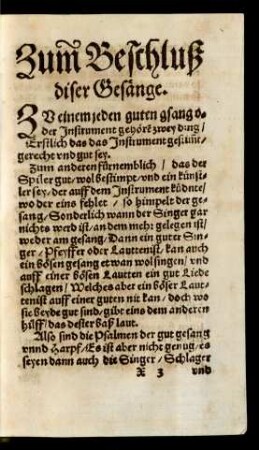 Zum̃ Beschluß
diser Gesänge.
ZU einem jeden guten gsang o-
der Instrument gehört zwey ding /
Erstlich das das Instrument gestim̃t
gerecht vnd gut sey.
Zum anderen fürnemblich / das der
Spiler gut / wol bestimpt / vnd ein künst-
ler sey / der auff dem Instrument kündte /
wo der eins fehlet / so himpelt der ge-
sang / Sonderlich wann der Singer gar
nichts werd ist / an dem mehr gelegen ist /
weder am gesang / Dann ein guter Sin-
ger / Pfeyffer oder Lauttenist / kan auch
ein bösen gesang etwan wol singen / vnd
auff einer bösen Lautten ein gut Liede
schlagen / Welches aber ein böser Laut-
tenist auff einer guten nit kan / doch wo
sie beyde gut sind / gibt eins dem anderen
hilff / das dester baß laut.
Also sind die Psalmen der gut gesang
vnnd Harpf / Es ist aber nicht genug / es
seyen dann auch die Singer / Schlager
X 3 vnd